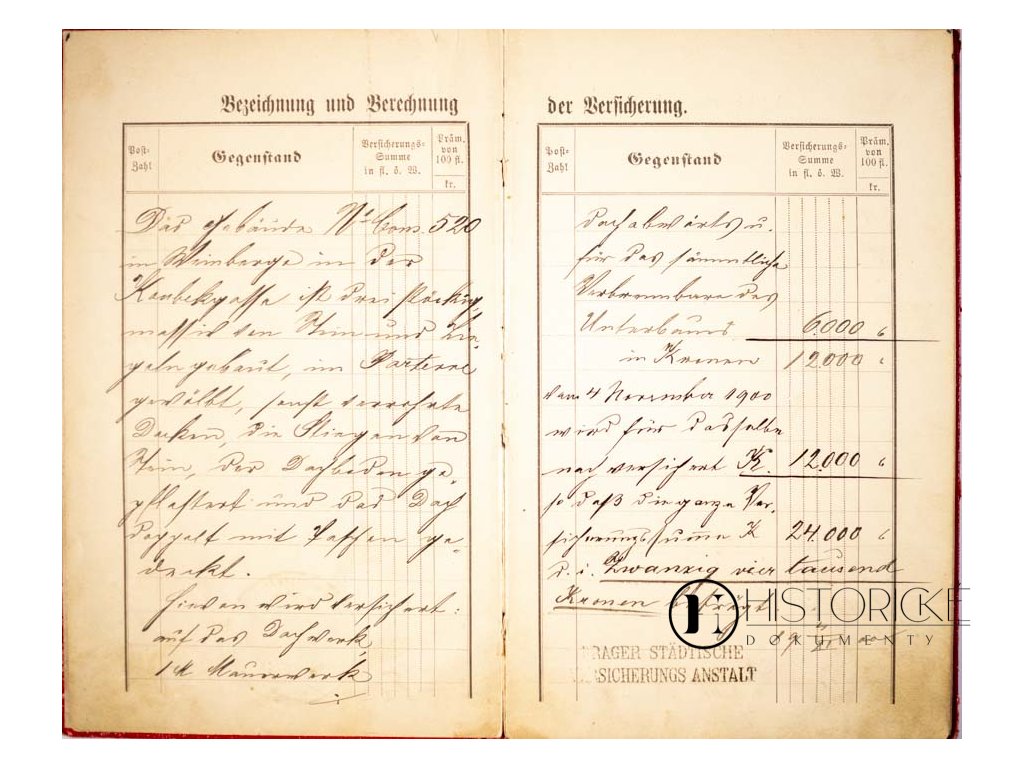 Bezeichnung und Berechnung
Post-
Zahl
Gegenstand
Versicherungs-
Summe
in fl. ö. W.
Präm.
von
100 fl.
kr.
Das Gebäude No Cons. 520
in Weinberge in der
ist drei stöckig,
massiv von Stein und Zie-
geln gebaut, im Parterre
gewölbt, sonst verrohrte
Decken, die Stiegen von
Stein, der Dachboden ge-
pflastert und das Dach
doppelt mit Taschen ge-
deckt.
Hievon wird versichert:
auf das Dachwerk
1 Mauerwerk
der Versicherung.
Post-
Zahl
Gegenstand
Versicherungs-
Summe
in fl. ö. W.
Präm.
von
100 fl.
kr.
dachabwärts u.
für das sämmtliche
Verbrennbare des
Unterbaues 6.000
in Kronen 12.000
vom 4 November 1900
wird für dasselbe
nachversichert K. 12.000
so daß die ganze Ver-
sicherungssumme K 24.000
d. i. Zwanzig vier tausend
Kronen beträgt
HISTORICKÉ
DOKUMENTY
PRAGER STÄDTISCHE
VERSICHERUNGS ANSTALT